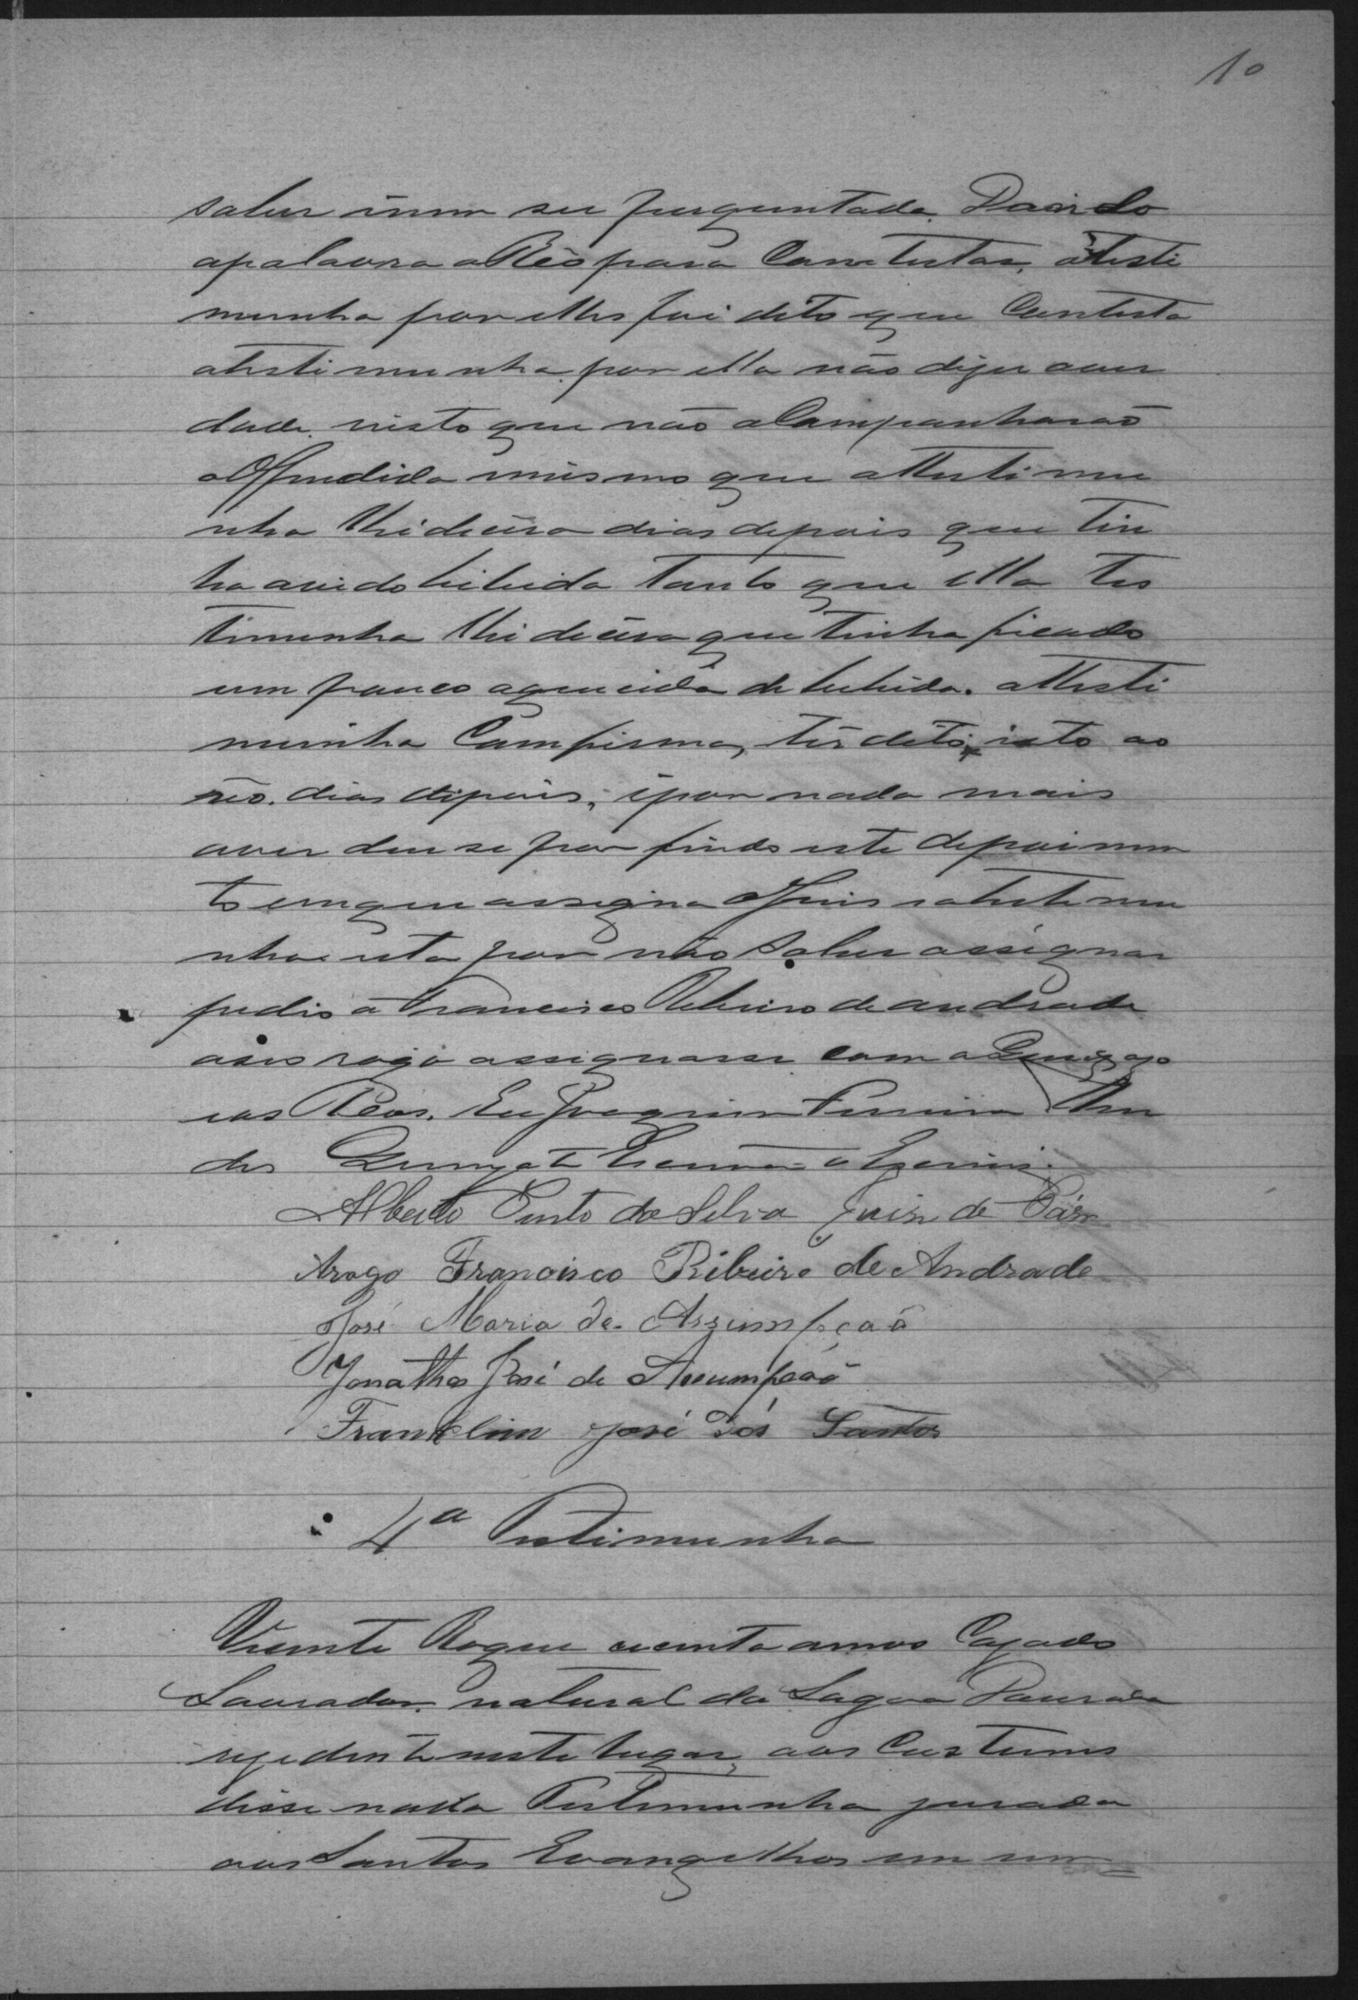 10
saber inem ser perguntada. Dando
apalavra aReo para Contestar, atesti
munha por elles foi dito que Contesta
atestimunha por ella não dizer aver
dade visto que não aCompanharaõ
aOffendida mesmo que attestimu
nha lhi dicera dias depois que tin
ha avido bibida tanto que ella tes
timunha lhi dicera que tinha ficado
um pouco aquecida de bebida. attesti
munha Comfirma, ter dito isto ao
reo. dias dipois, ipor nada mais
aver deu se por findo este depoimen
to emque assigna oJuis atestemu
nha esta por não saber assignar
pedio a Francisco Ribeiro de andrade
aseo rogo assignasse com o
eos Reos. Eu Joaquim Ferreira Men
des Escrivão o Escrivi.
Alberto Pinto da Silva Juiz de Páz
Arogo Francisco Ribeiro de Andrade
José Maria de Assumpçaõ
Jonathas José de Assumpçaõ
Franklim José dos Santos
4ª Testimunha
Vicente Roque vinte annos Cazado
Lavrador, natural da Lagoa Dourada
rezidente neste lugar, aos Custumes
disse nada Testemunha jurada
aos Santos Evangelhos em um